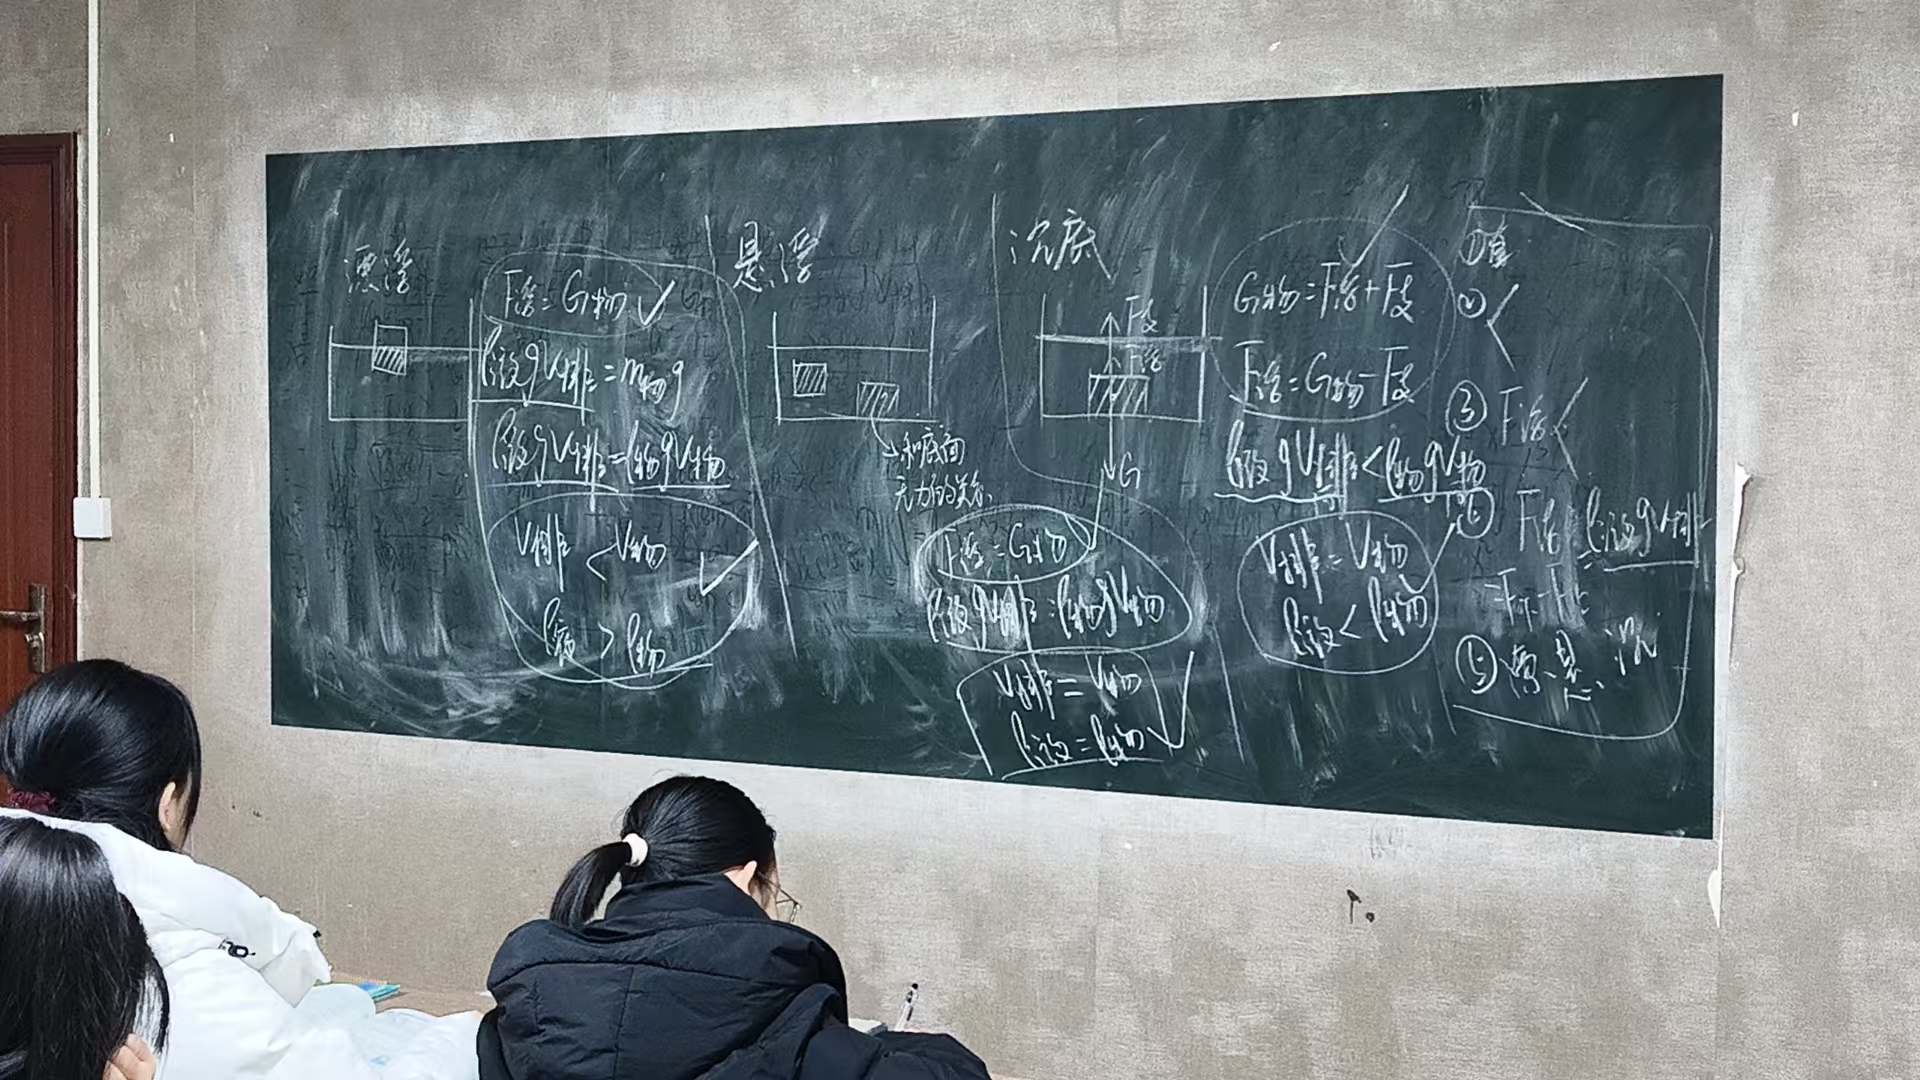 漂浮
F浮=G物 ✓
ρ液gV排=m物g
ρ液gV排=ρ物gV物
V排<V物 ✓
ρ液>ρ物
悬浮
→和底面
无力的关系
F浮=G物
ρ液gV排=ρ物gV物
V排=V物
ρ液=ρ物 ✓
沉底
F支
F浮
G
G物=F浮+F支 ✓
F浮=G物-F支
ρ液gV排<ρ物gV物
V排=V物
ρ液<ρ物 ✓
①
②
③ F浮
④ F浮=ρ液gV排
⑤ 漂、悬、沉